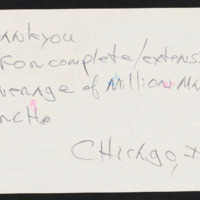 ank you
For complete/extens
verage of Million Ma
nch
Chicago, I